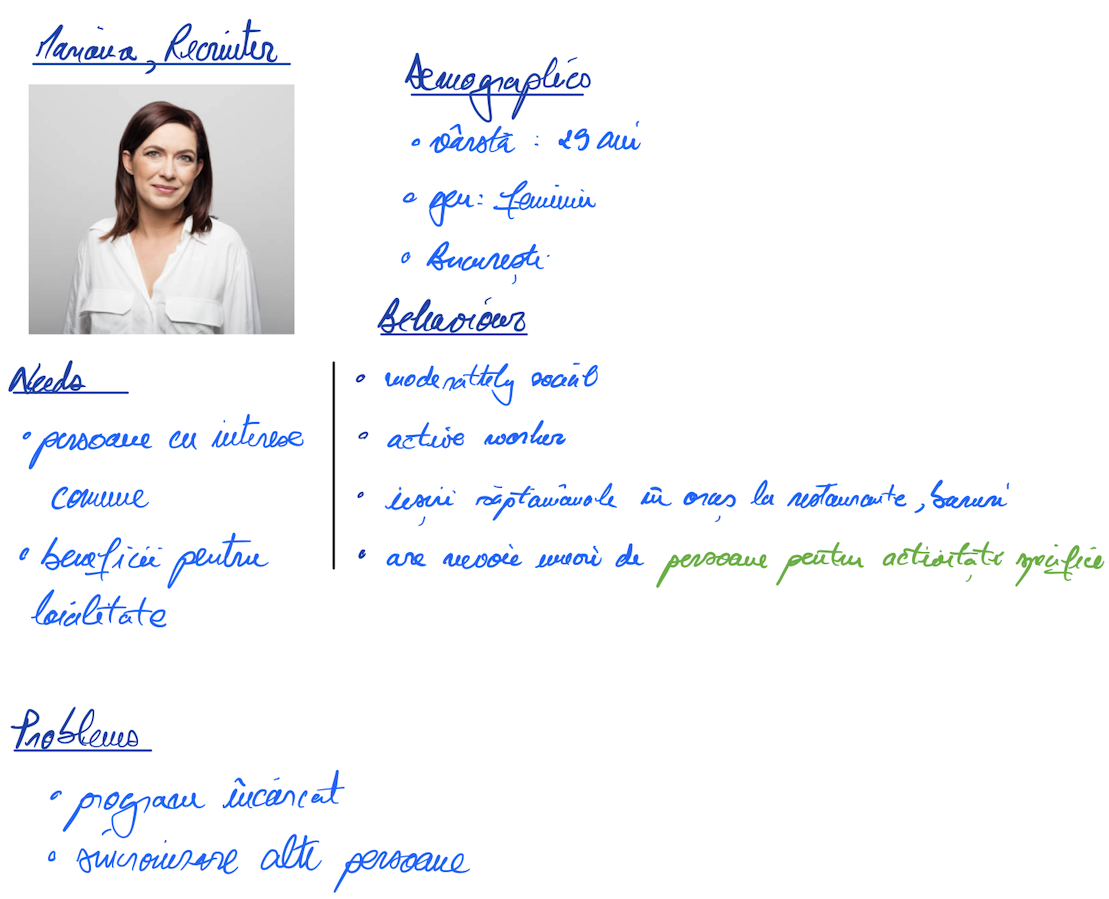 Mariana, Recruiter
Demographics
• vârstă : 29 ani
• gen: feminin
• București
Behaviour
• moderattely social
• active worker
• ieșiri săptamânale în oraș la restaurante, baruri
• are nevoie uneori de persoane pentru activități specifice
Needs
• persoane cu interese
comune
• beneficii pentru
loialitate
Problems
• program încărcat
• sincronizare alte persoane